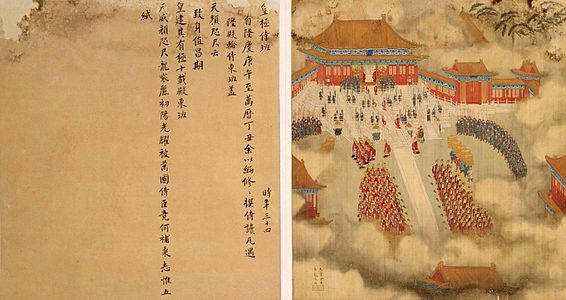 皇極侍班
時年三十四
自隆慶庚午至萬曆丁丑余以編修、撰侍讀凡遇
陞殿輪侍東班蓋
天顏咫尺云
致身值昌期
皇建其有極十載殿東班
天威顏咫尺龍袞麗初陽光耀被萬國侍臣竟何補秉志惟五
緎